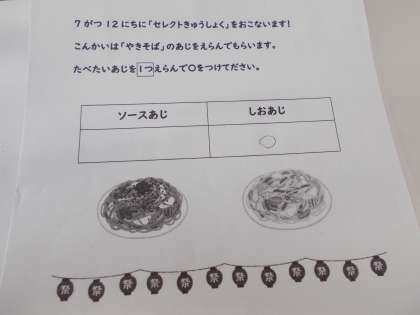 7がつ12にちに「セレクトきゅうしょく」をおこないます!
こんかいは「やきそば」のあじをえらんでもらいます。
たべたいあじを1つえらんで○をつけてださい。
ソースあじ しおあじ
○
祭 祭 祭 祭 祭 祭 祭 祭 祭 祭 祭 祭